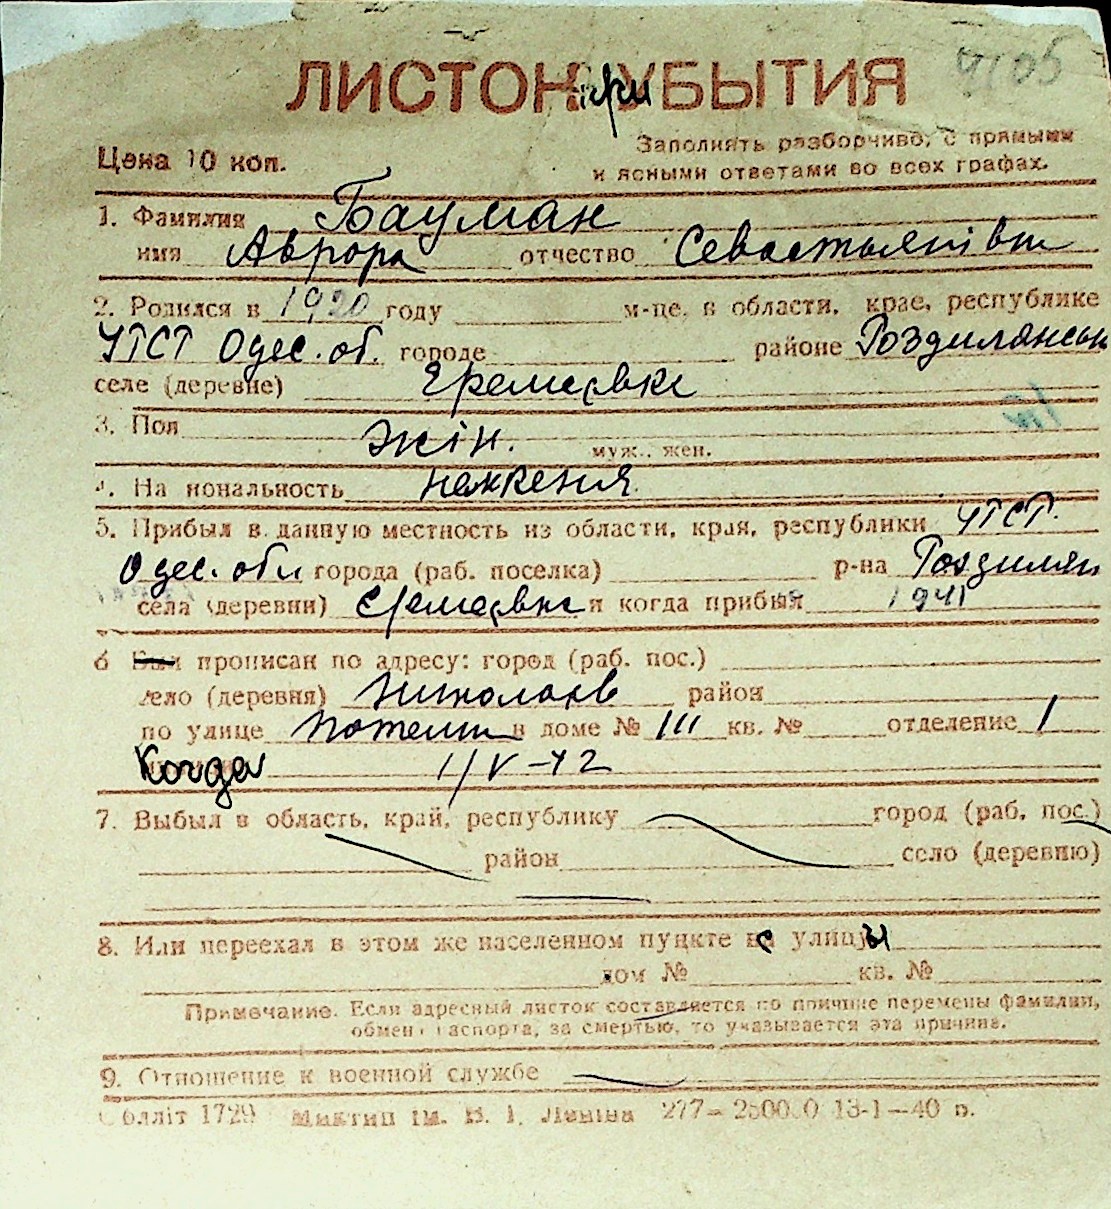 ЛИСТОК при УБЫТИЯ
Цена 10 коп.
Заполнять разборчиво, с прямыми
и ясными ответами во всех графах.
1. Фамилия Бауман
имя Аврора отчество Севастьянівн
2. Родился в 1920 году м-це, в области, крае, республике
УРСР Одес. об. городе районе Роздилянськ
селе (деревне) Яремеївка
3. Пол жін. муж., жен.
4. Национальность немкеня
5. Прибыл в данную местность из области, края, республики УРСР.
Одес. обл города (раб. поселка) р-на Роздилян
села (деревни) Єремеївка и когда прибыл 1941
6 Был прописан по адресу: город (раб. пос.)
село (деревня) Николаїв район
по улице в доме № 111 кв. № отделение 1
Когда 1/V-42
7. Выбыл в область, край, республику город (раб. пос.)
район село (деревню)
8. Или переехал в этом же населенном пункте с улицы
дом № кв. №
Примечание. Если адресный листок составляется по причине перемены фамилии,
обмена паспорта, за смертью, то указывается эта причина.
9. Отношение к военной службе
Облліт 1729 Миктип ім. В. І. Леніна 277—250000 13-1—40 р.